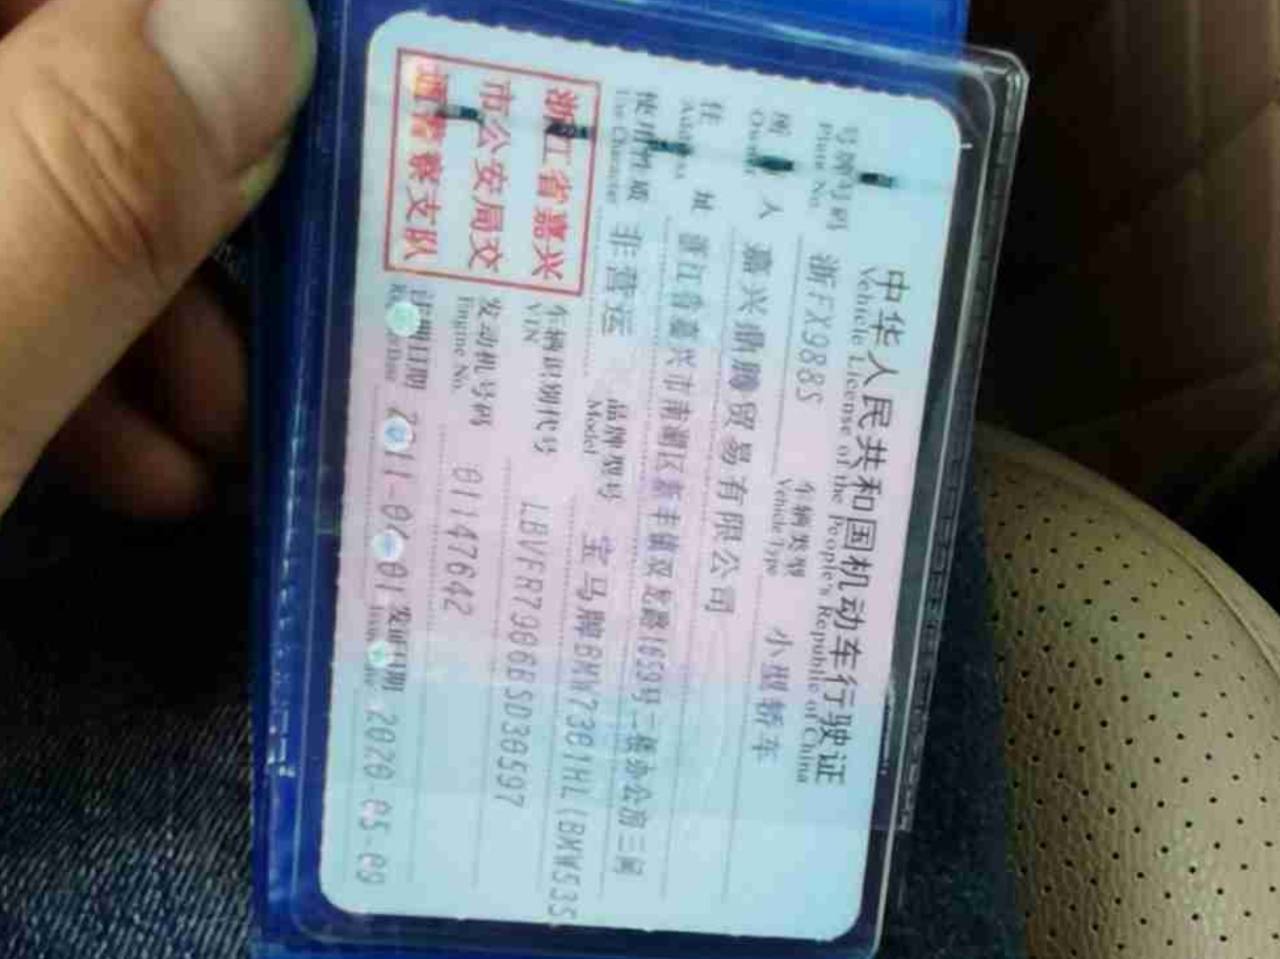 中华人民共和国机动车行驶证
Vehicle License of the People's Republic of China
号牌号码 浙FX988S 车辆类型 小型轿车
Plate No. Vehicle Type
所 人 嘉兴鼎腾贸易有限公司
住 址 浙江省嘉兴市南湖区新丰镇双龙路1659号二楼办公部三间
使用性质 非营运 品牌型号 宝马牌BMW7301HL(BMW535
Use Character Model
浙江省嘉兴
市公安局交
通警察支队
车辆识别代号
VIN
发动机号码 01147642
Engine No.
注册日期 2011-0 -01 发证日期 2020-05-09